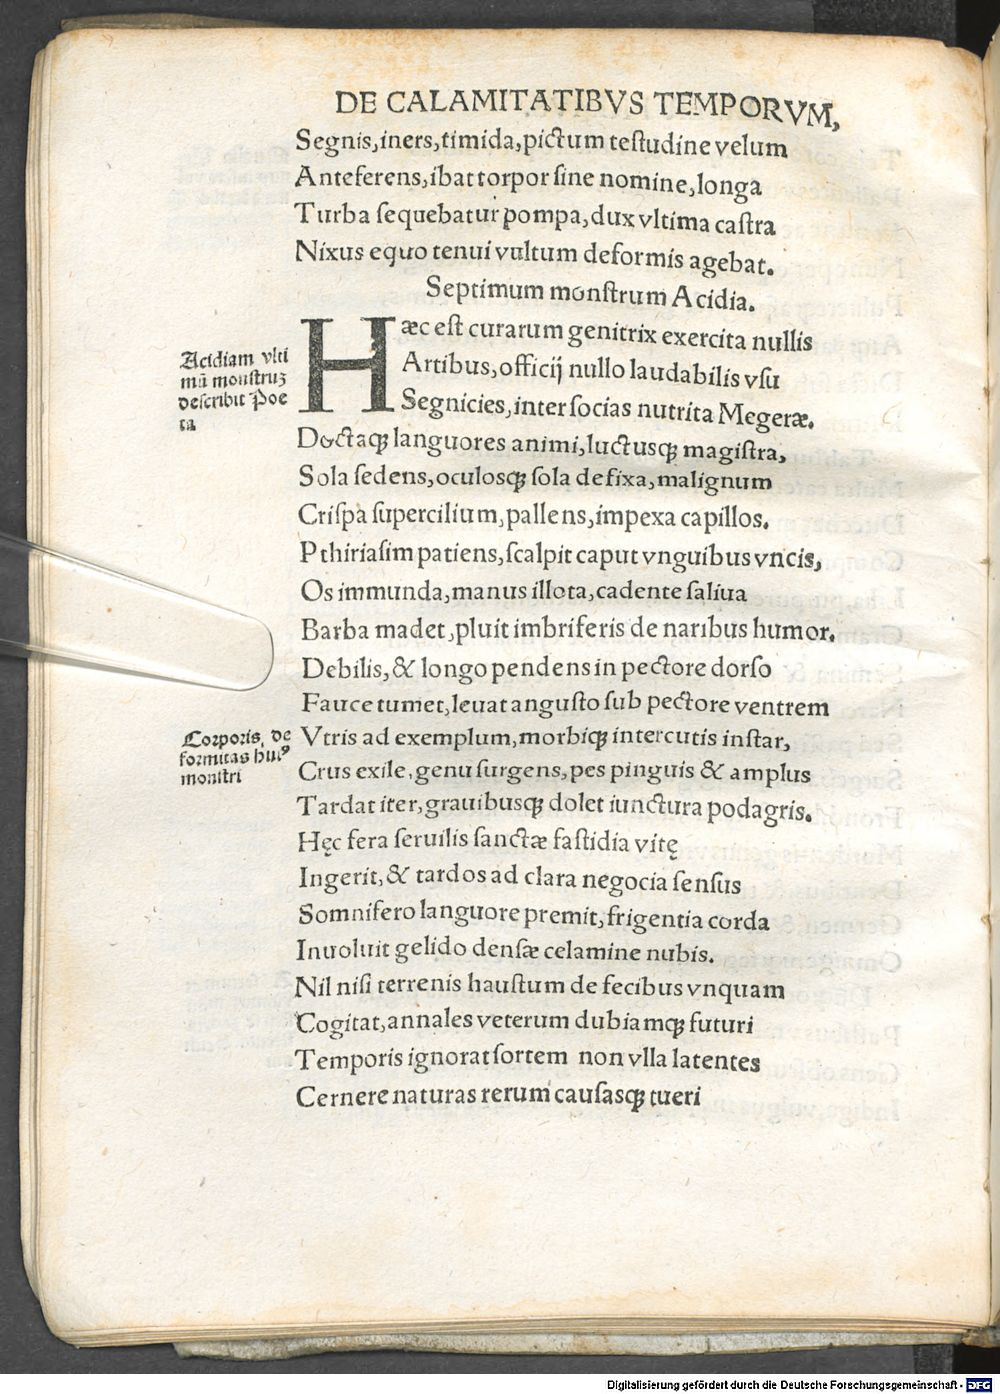 DE CALAMITATIBVS TEMPORVM,
Segnis,iners,timida,pictum teſtudine velum
Anteferens,ibat torpor ſine nomine,longa
Turba ſequebatur pompa,dux vltima caſtra
Nixus equo tenui vultum deformis agebat.
Septimum monſtrum Acidia.
Hæc eſt curarum genitrix exercita nullis
Artibus,officij nullo laudabilis vſu
Segnicies,inter ſocias nutrita Megeræ.
Acidiam vlti
mū monſtruꝫ
deſcribit Poe
ta
Doctaqꝫ languores animi,luctusqꝫ magiſtra,
Sola ſedens,oculosqꝫ ſola defixa,malignum
Criſpa ſupercilium,pallens,impexa capillos.
Pthiriaſim patiens,ſcalpit caput vnguibus vncis,
Os immunda,manus illota,cadente ſaliua
Barba madet,pluit imbriferis de naribus humor.
Debilis,& longo pendens in pectore dorſo
Fauce tumet,leuat anguſto ſub pectore ventrem
Corporis, de
formitas huiꝰ
monſtri
Vtris ad exemplum,morbiqꝫ intercutis inſtar,
Crus exile,genu ſurgens,pes pinguis & amplus
Tardat iter,grauibusqꝫ dolet iunctura podagris.
Hęc fera ſeruilis ſanctæ faſtidia vitę
Ingerit,& tardos ad clara negocia ſenſus
Somnifero languore premit,frigentia corda
Inuoluit gelido denſæ celamine nubis.
Nil niſi terrenis hauſtum de fecibus vnquam
Cogitat,annales veterum dubiamqꝫ futuri
Temporis ignorat ſortem non vlla latentes
Cernere naturas rerum cauſasqꝫ tueri
Digitalisierung gefördert durch die Deutsche Forschungsgemeinschaft - DFG